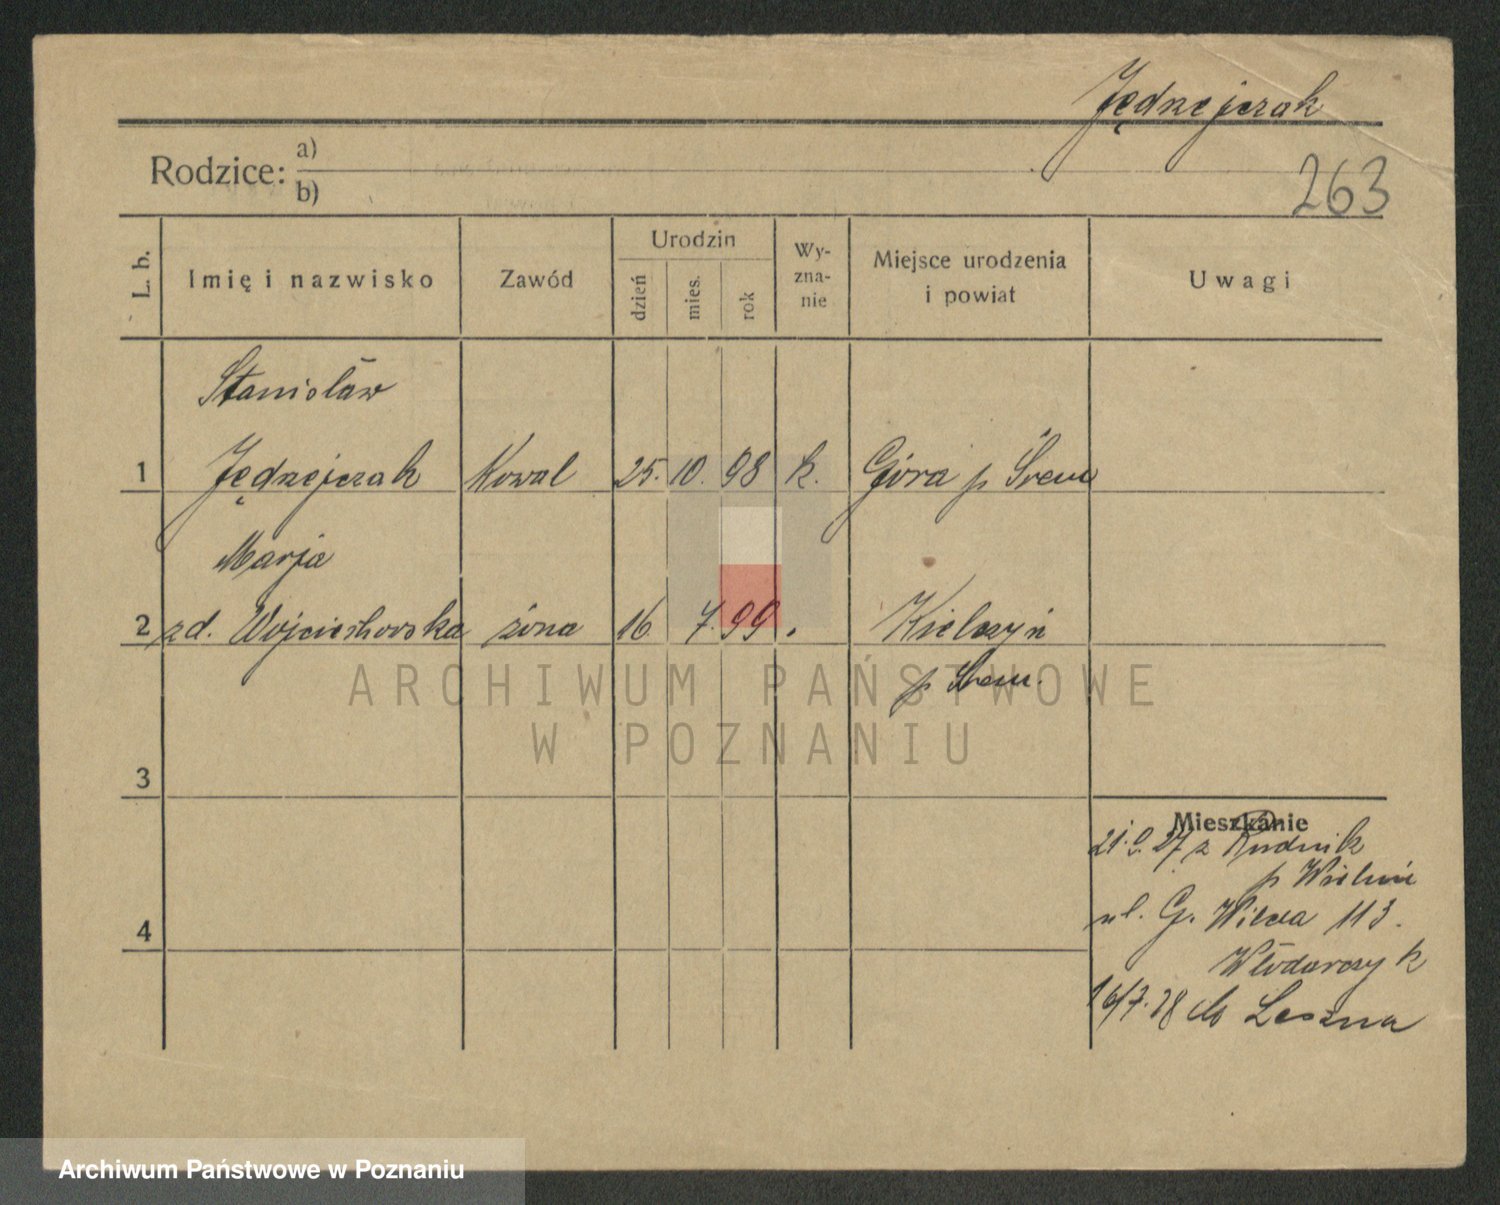 Jędrzejczak
263
Rodzice: a)
b)
L. b.
Imię i nazwisko
Zawód
Urodzin
dzień
mies.
rok
Wy-
zna-
nie
Miejsce urodzenia
i powiat
Uwagi
Stanisław
1 Jędrzejczak Kowal 25. 10. 98 k. Góra p Śrem
Marja
2 zd. Wojciechowska żona 16. 7. 99 Kielczyń
p Śrem.
ARCHIWUM PAŃSTWOWE
W POZNANIU
3
Mieszkanie
21.9.27 z Rudnik
p Wieluń
ul. G. Wilda 113.
4
Włodarczyk
16/7.28 do Leszna
Archiwum Państwowe w Poznaniu